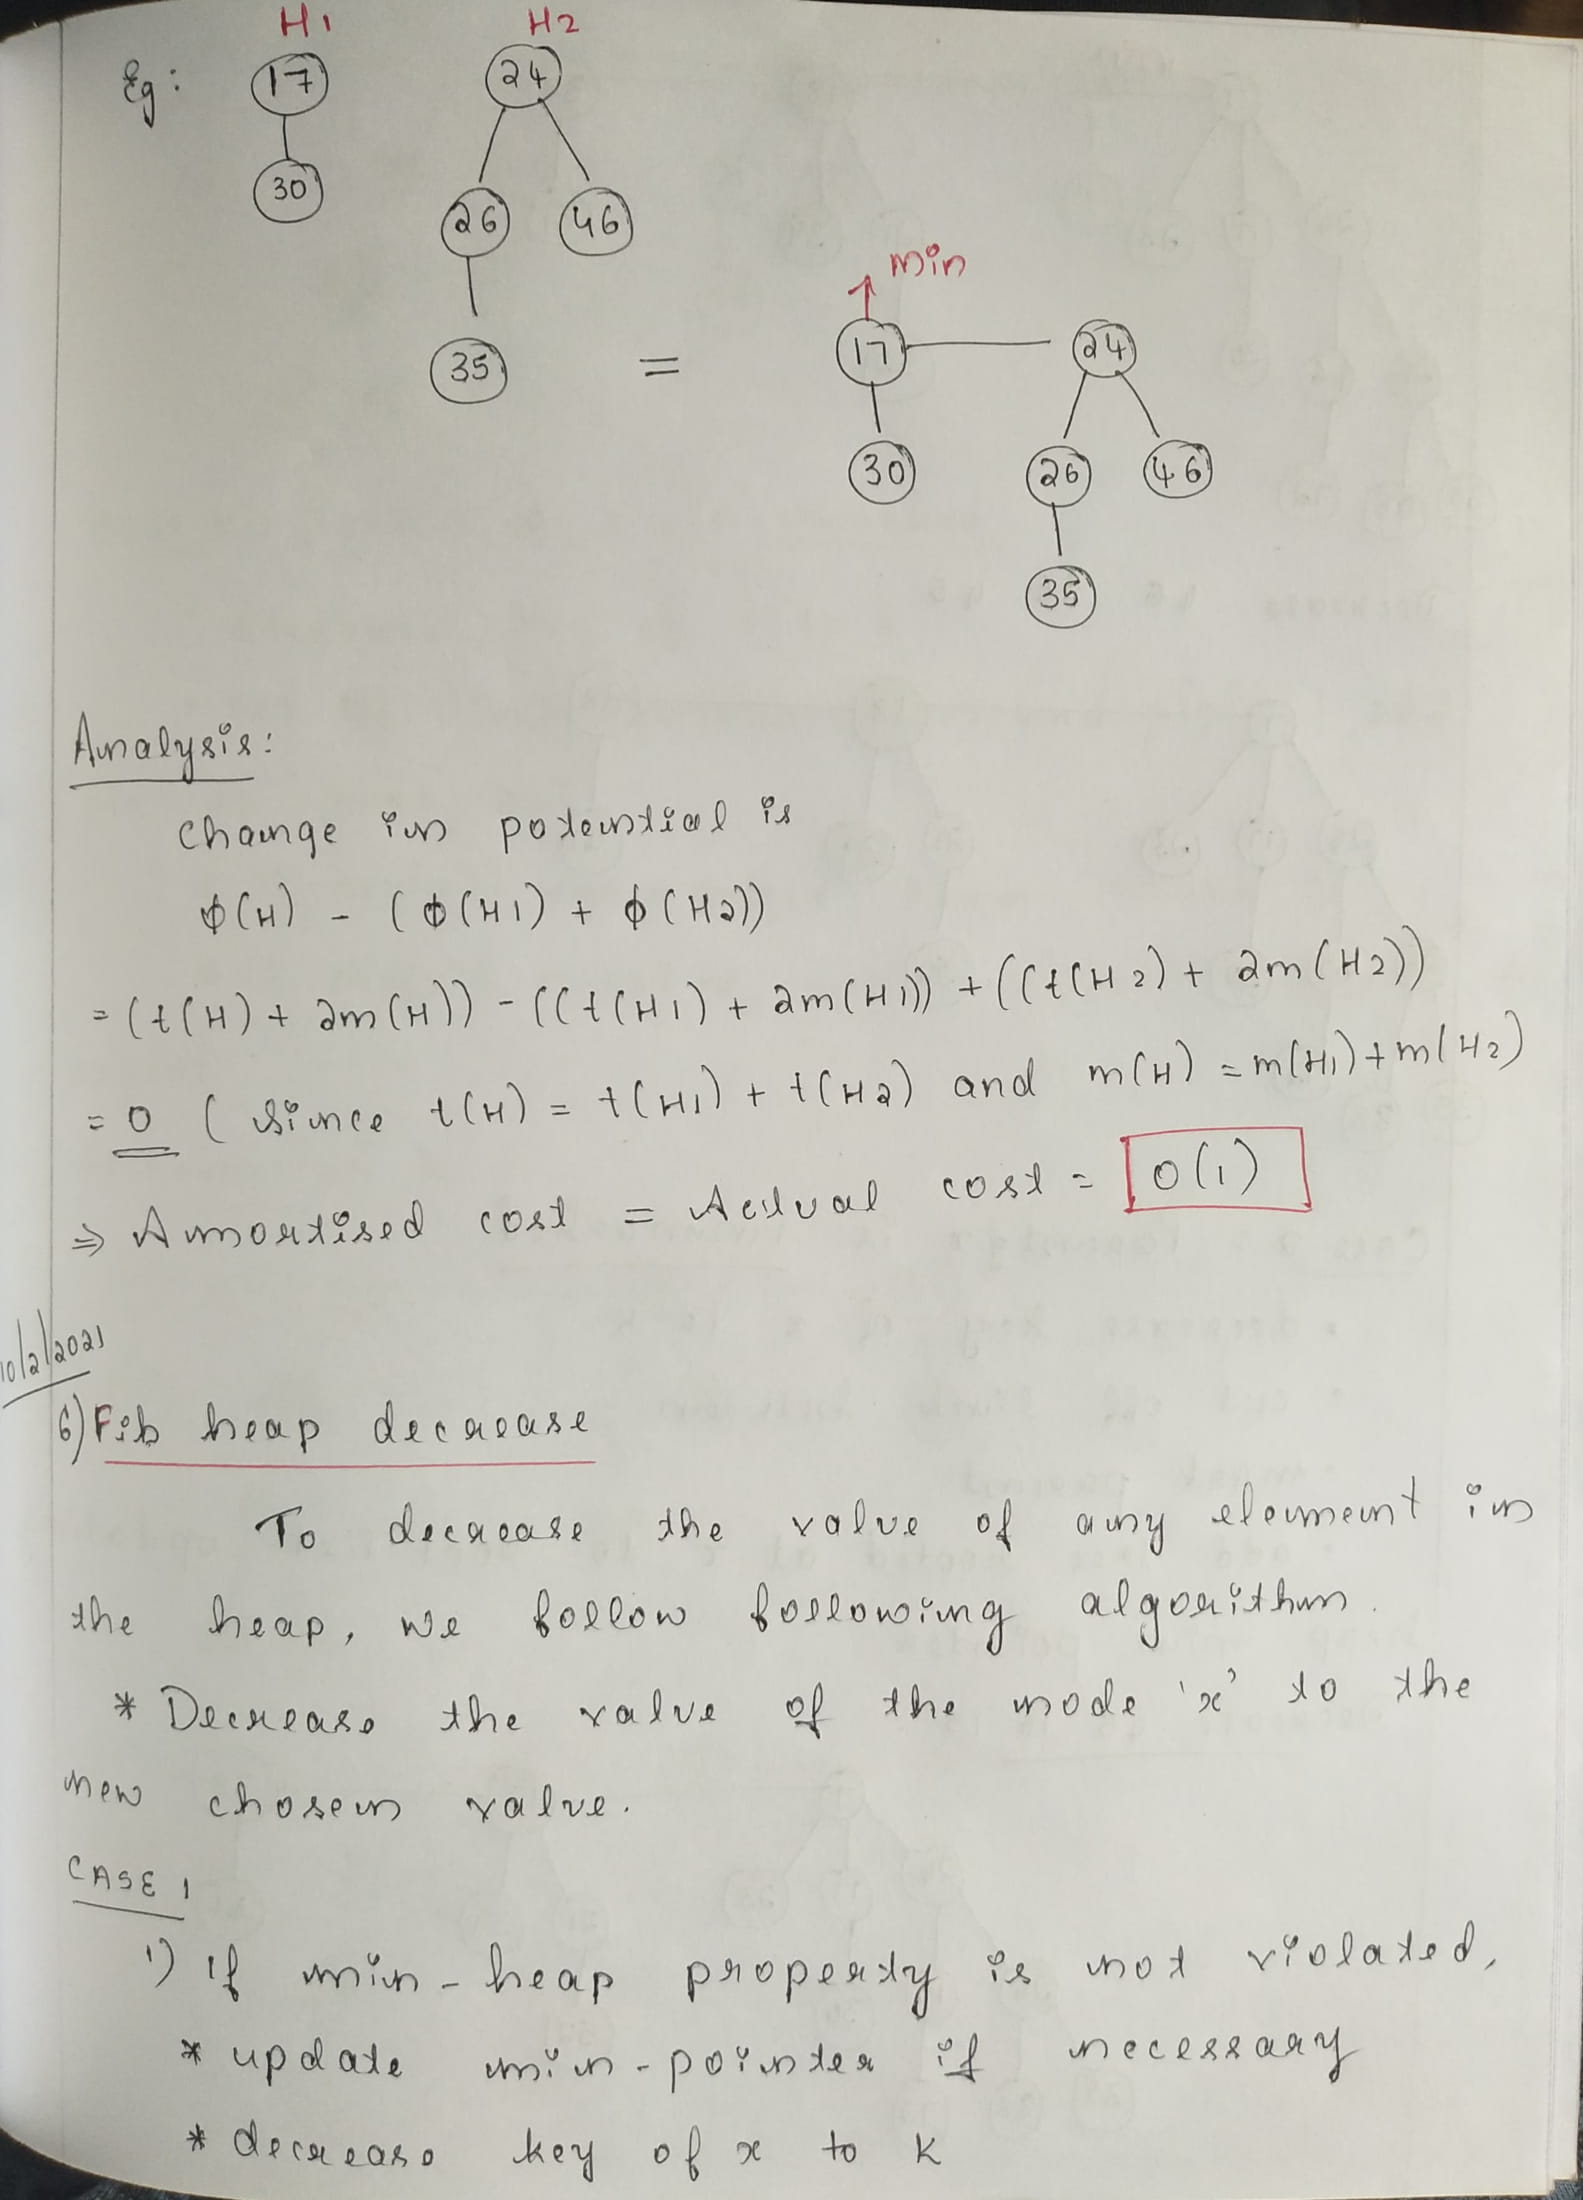 H1 H2
Eg: 17 24
30
26 46
min
35 = 17 24
30 26 46
35
Analysis:
change in potential is
ϕ(H) - (ϕ(H1) + ϕ(H2))
= (t(H) + 2m(H)) - ((t(H1) + 2m(H1)) + ((t(H2) + 2m(H2))
= 0 ( since t(H) = t(H1) + t(H2) and m(H) = m(H1) + m(H2)
⇒ Amortised cost = Actual cost = O(1)
10/2/2021
6) Fib heap decrease
To decrease the value of any element in
the heap, we follow following algorithm.
* Decrease the value of the node 'x' to the
new chosen value.
CASE 1
1) If min-heap property is not violated,
* update min-pointer if necessary
* decrease key of x to k